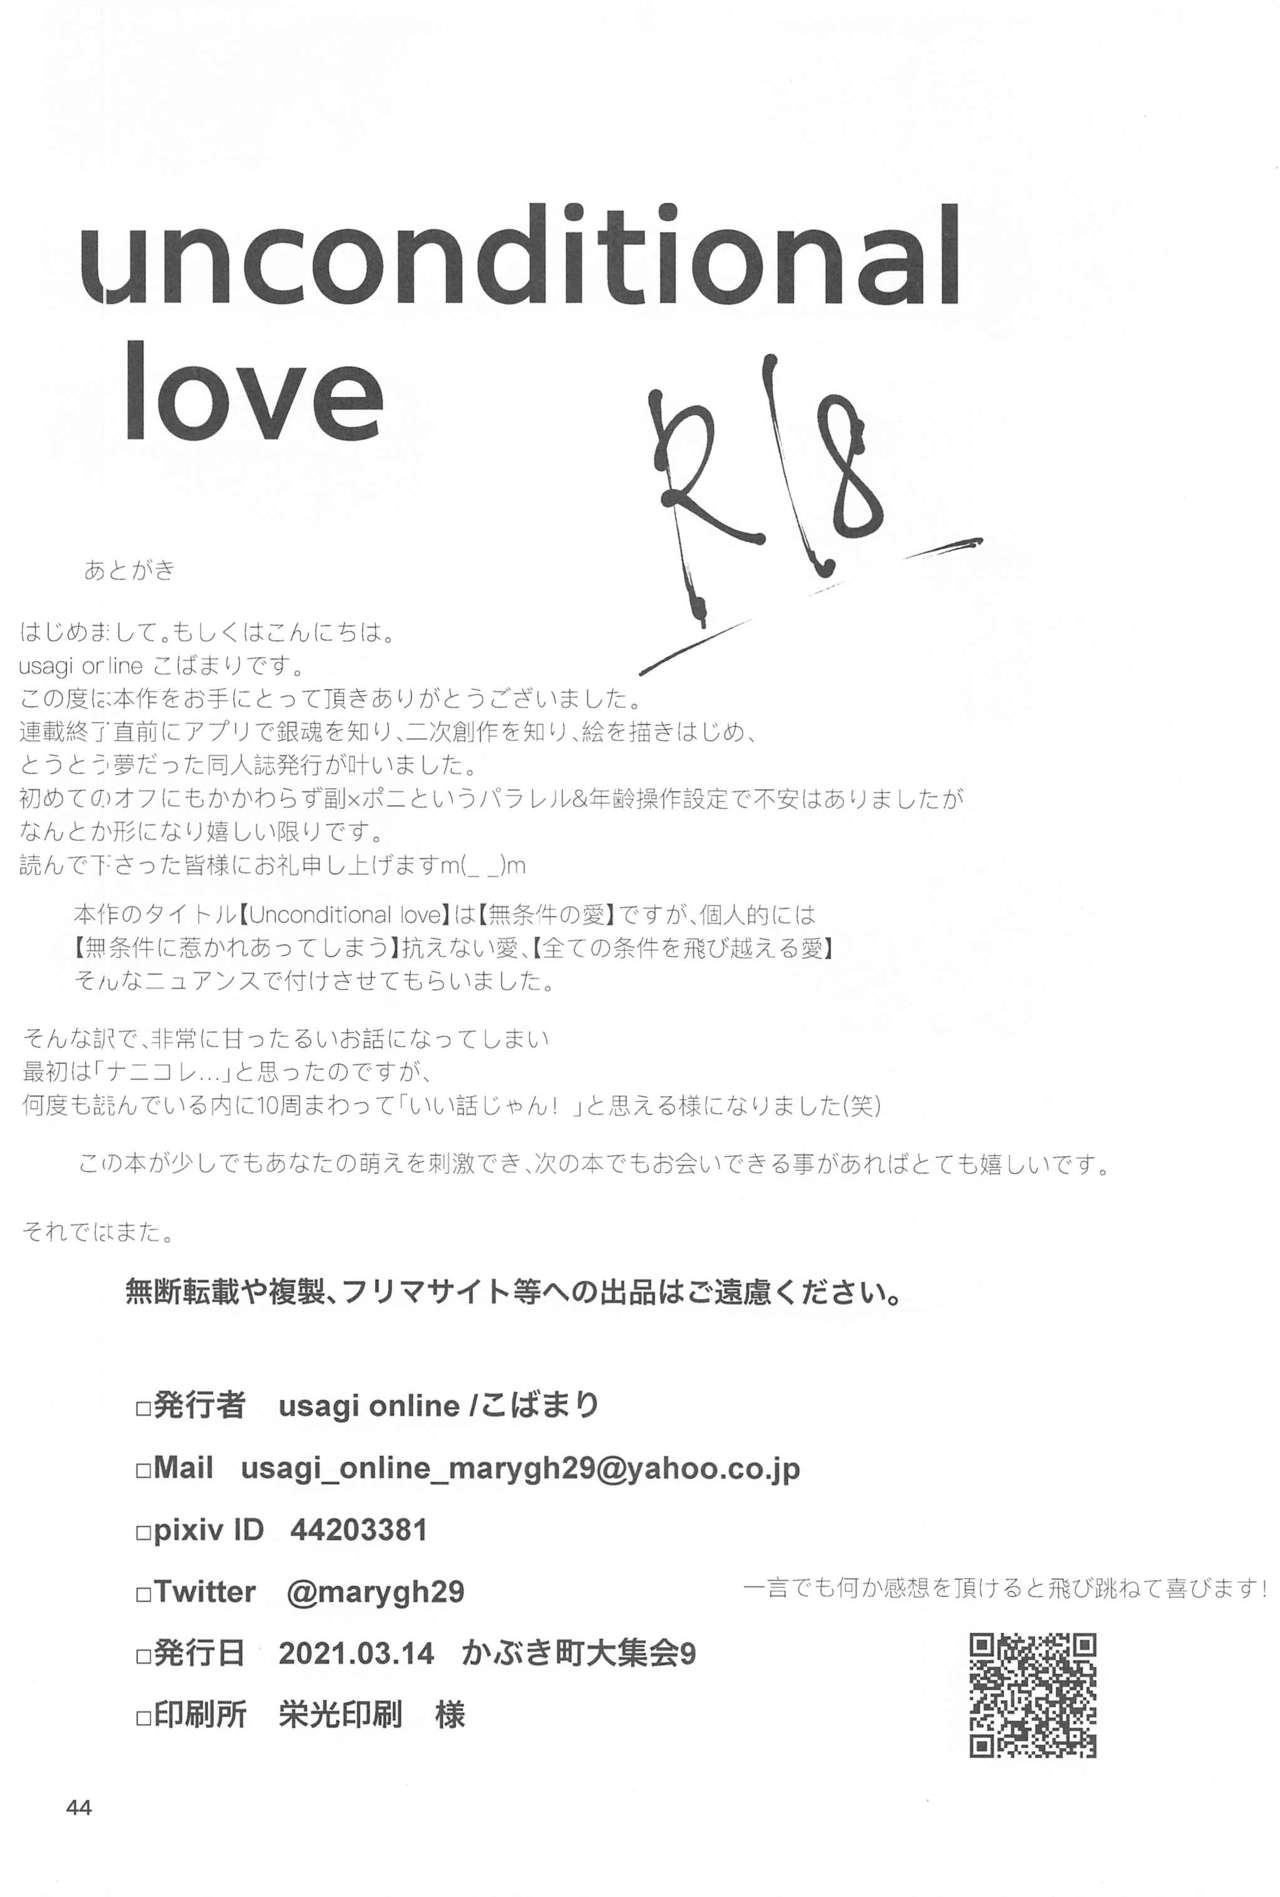 unconditional
love
R18
あとがき
はじめまして。もしくはこんにちは。
usagi online こばまりです。
この度は本作をお手にとって頂きありがとうございました。
連載終了直前にアプリで銀魂を知り、二次創作を知り、絵を描きはじめ、
とうとう夢だった同人誌発行が叶いました。
初めてのオフにもかかわらず副×ポニというパラレル&年齢操作設定で不安はありましたが
なんとか形になり嬉しい限りです。
読んで下さった皆様にお礼申し上げますm(_ _)m
本作のタイトル【Unconditional love】は【無条件の愛】ですが、個人的には
【無条件に惹かれあってしまう】抗えない愛、【全ての条件を飛び越える愛】
そんなニュアンスで付けさせてもらいました。
そんな訳で、非常に甘ったるいお話になってしまい
最初は「ナニコレ...」と思ったのですが、
何度も読んでいる内に10周まわって「いい話じゃん！」と思える様になりました(笑)
この本が少しでもあなたの萌えを刺激でき、次の本でもお会いできる事があればとても嬉しいです。
それではまた。
無断転載や複製、フリマサイト等への出品はご遠慮ください。
□発行者　usagi online /こばまり
□Mail　usagi_online_marygh29@yahoo.co.jp
□pixiv ID　44203381
□Twitter　@marygh29
一言でも何か感想を頂けると飛び跳ねて喜びます！
□発行日　2021.03.14　かぶき町大集会9
□印刷所　栄光印刷　様
44